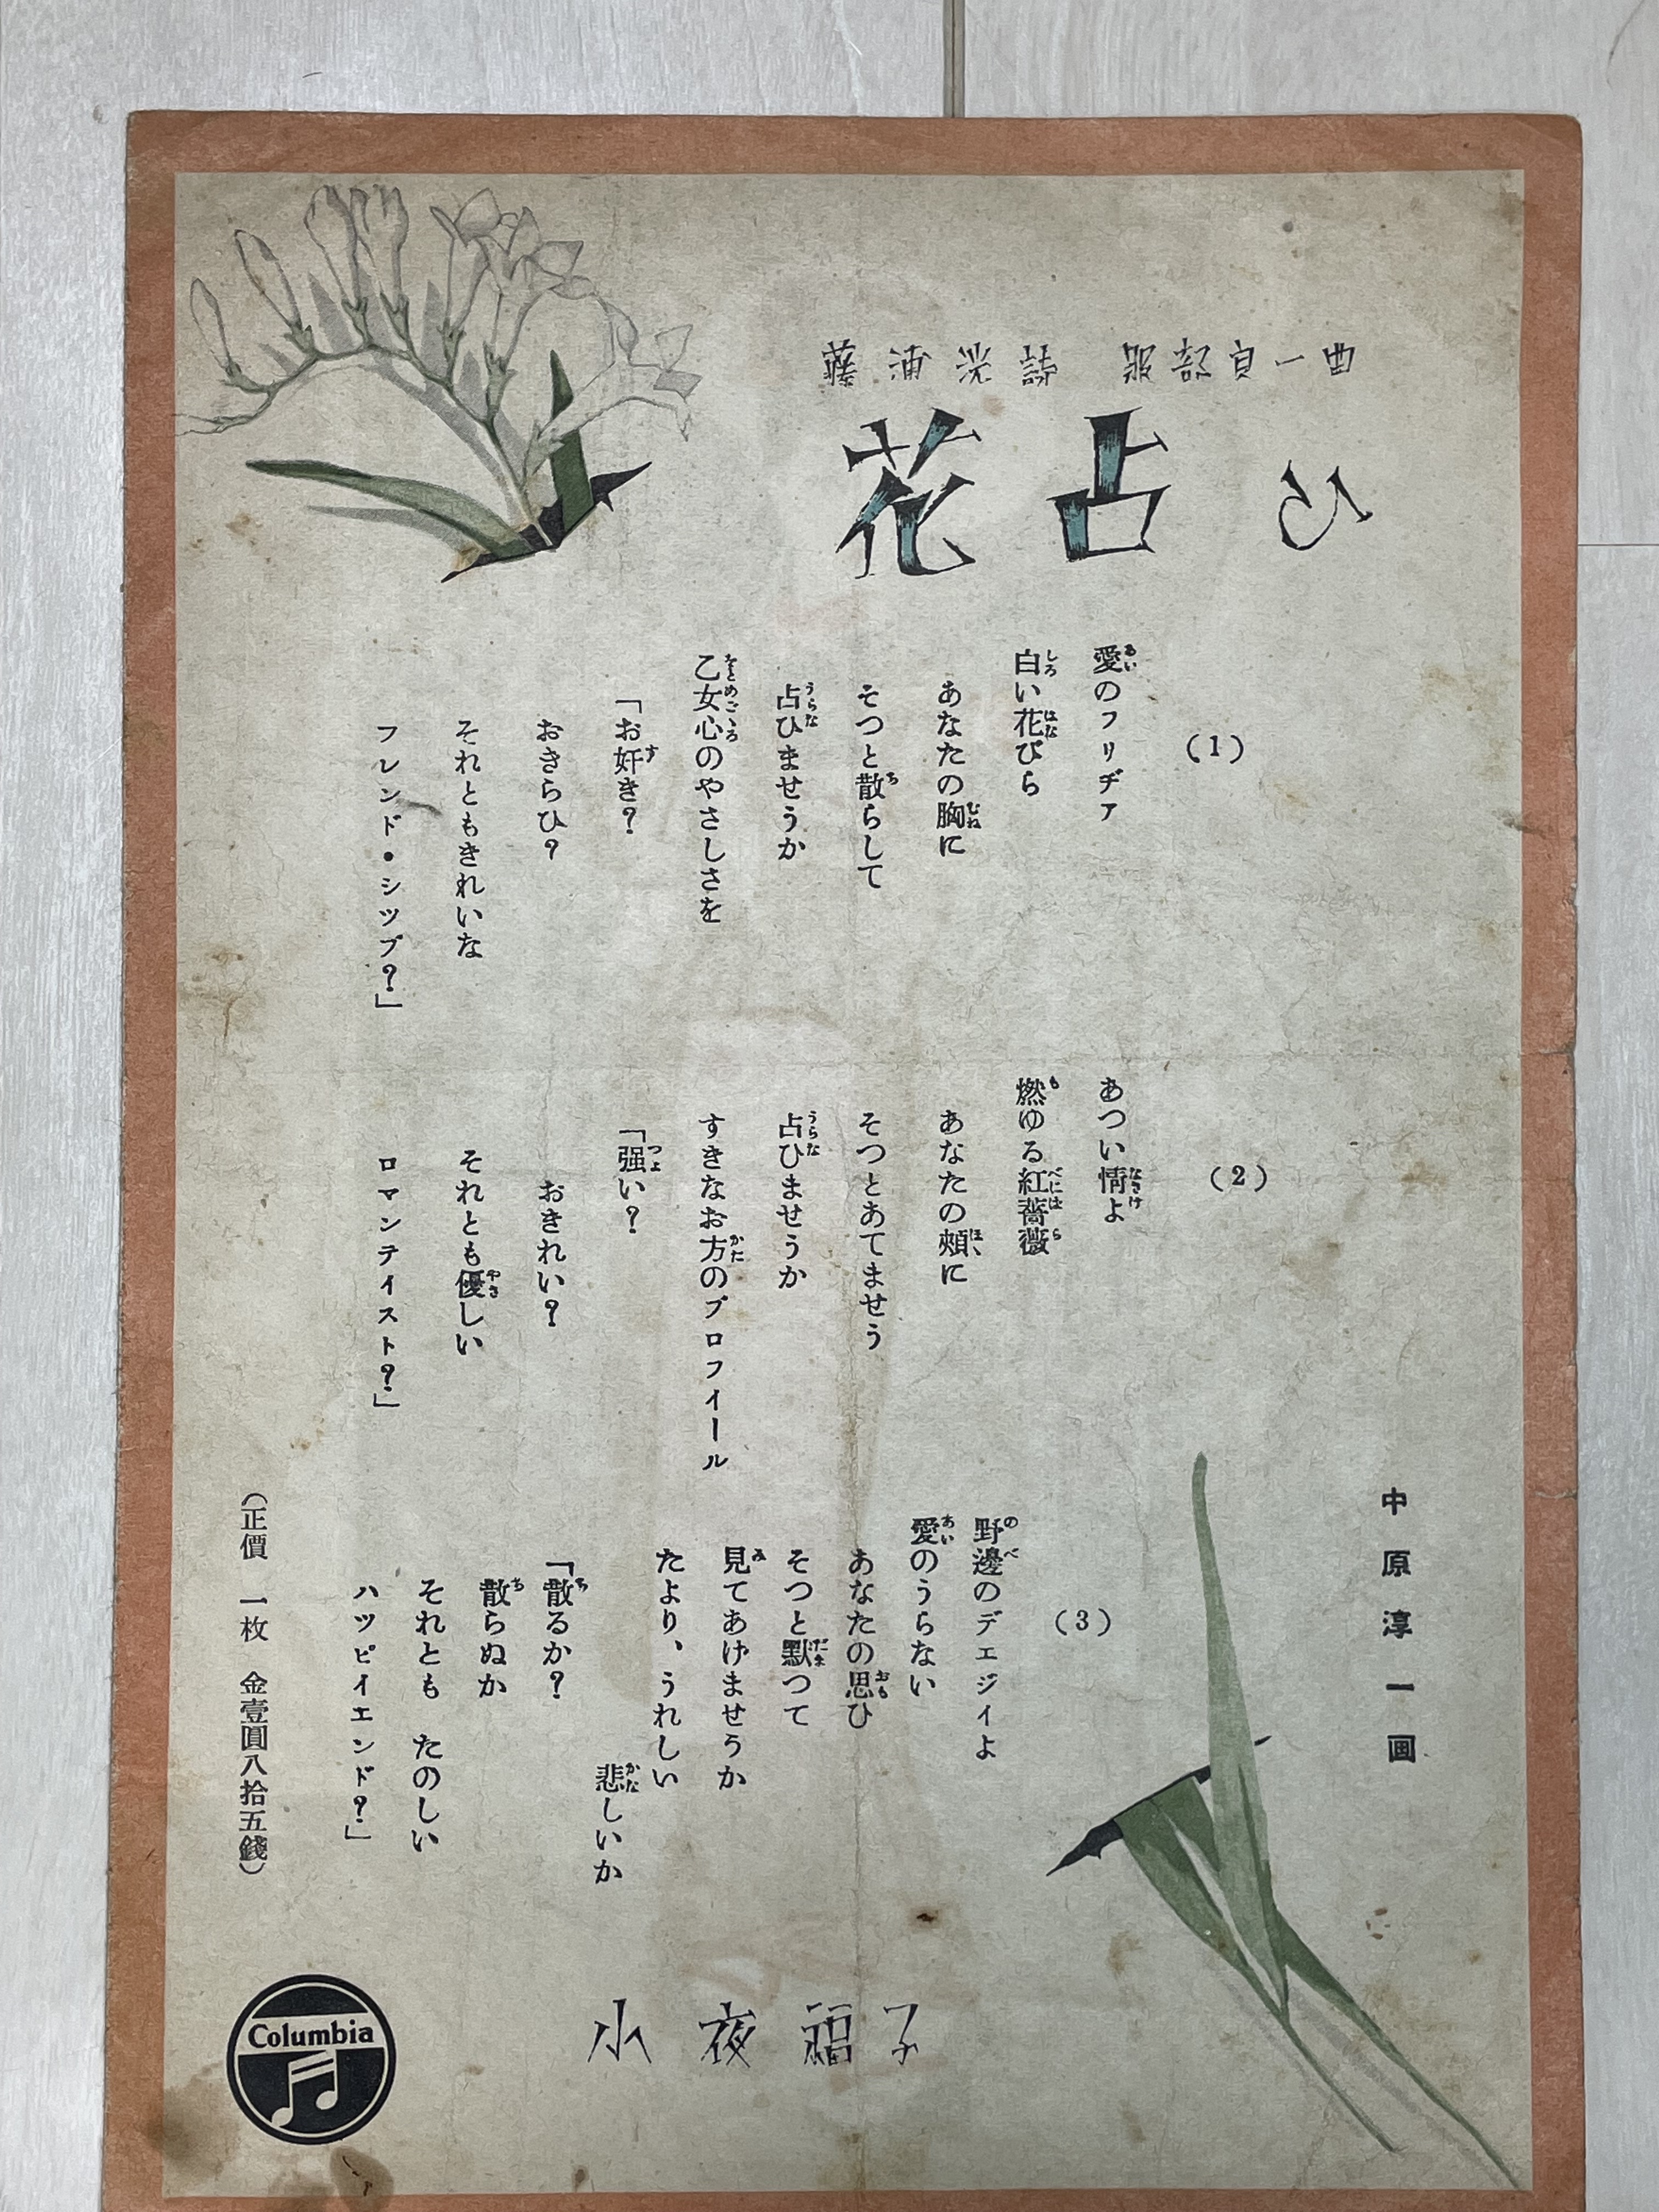 藤浦洸詩 服部良一曲
花占ひ
(1)
愛のフリヂア
白い花びら
あなたの胸に
そつと散らして
占ひませうか
乙女心のやさしさを
「お好き?
おきらひ?
それともきれいな
フレンド・シツプ?」
(2)
あつい情よ
燃ゆる紅薔薇
あなたの頰に
そつとあてませう
占ひませうか
すきなお方のプロフイール
「强い?
おきれい?
それとも優しい
ロマンテイスト?」
(3)
野邊のデエジイよ
愛のうらない
あなたの思ひ
そつと默つて
見てあげませうか
たより、うれしい
悲しいか
「散るか?
散らぬか
それとも たのしい
ハツピイエンド?」
中原淳一画
(正價 一枚 金壹圓八拾五錢)
小夜福子
Columbia